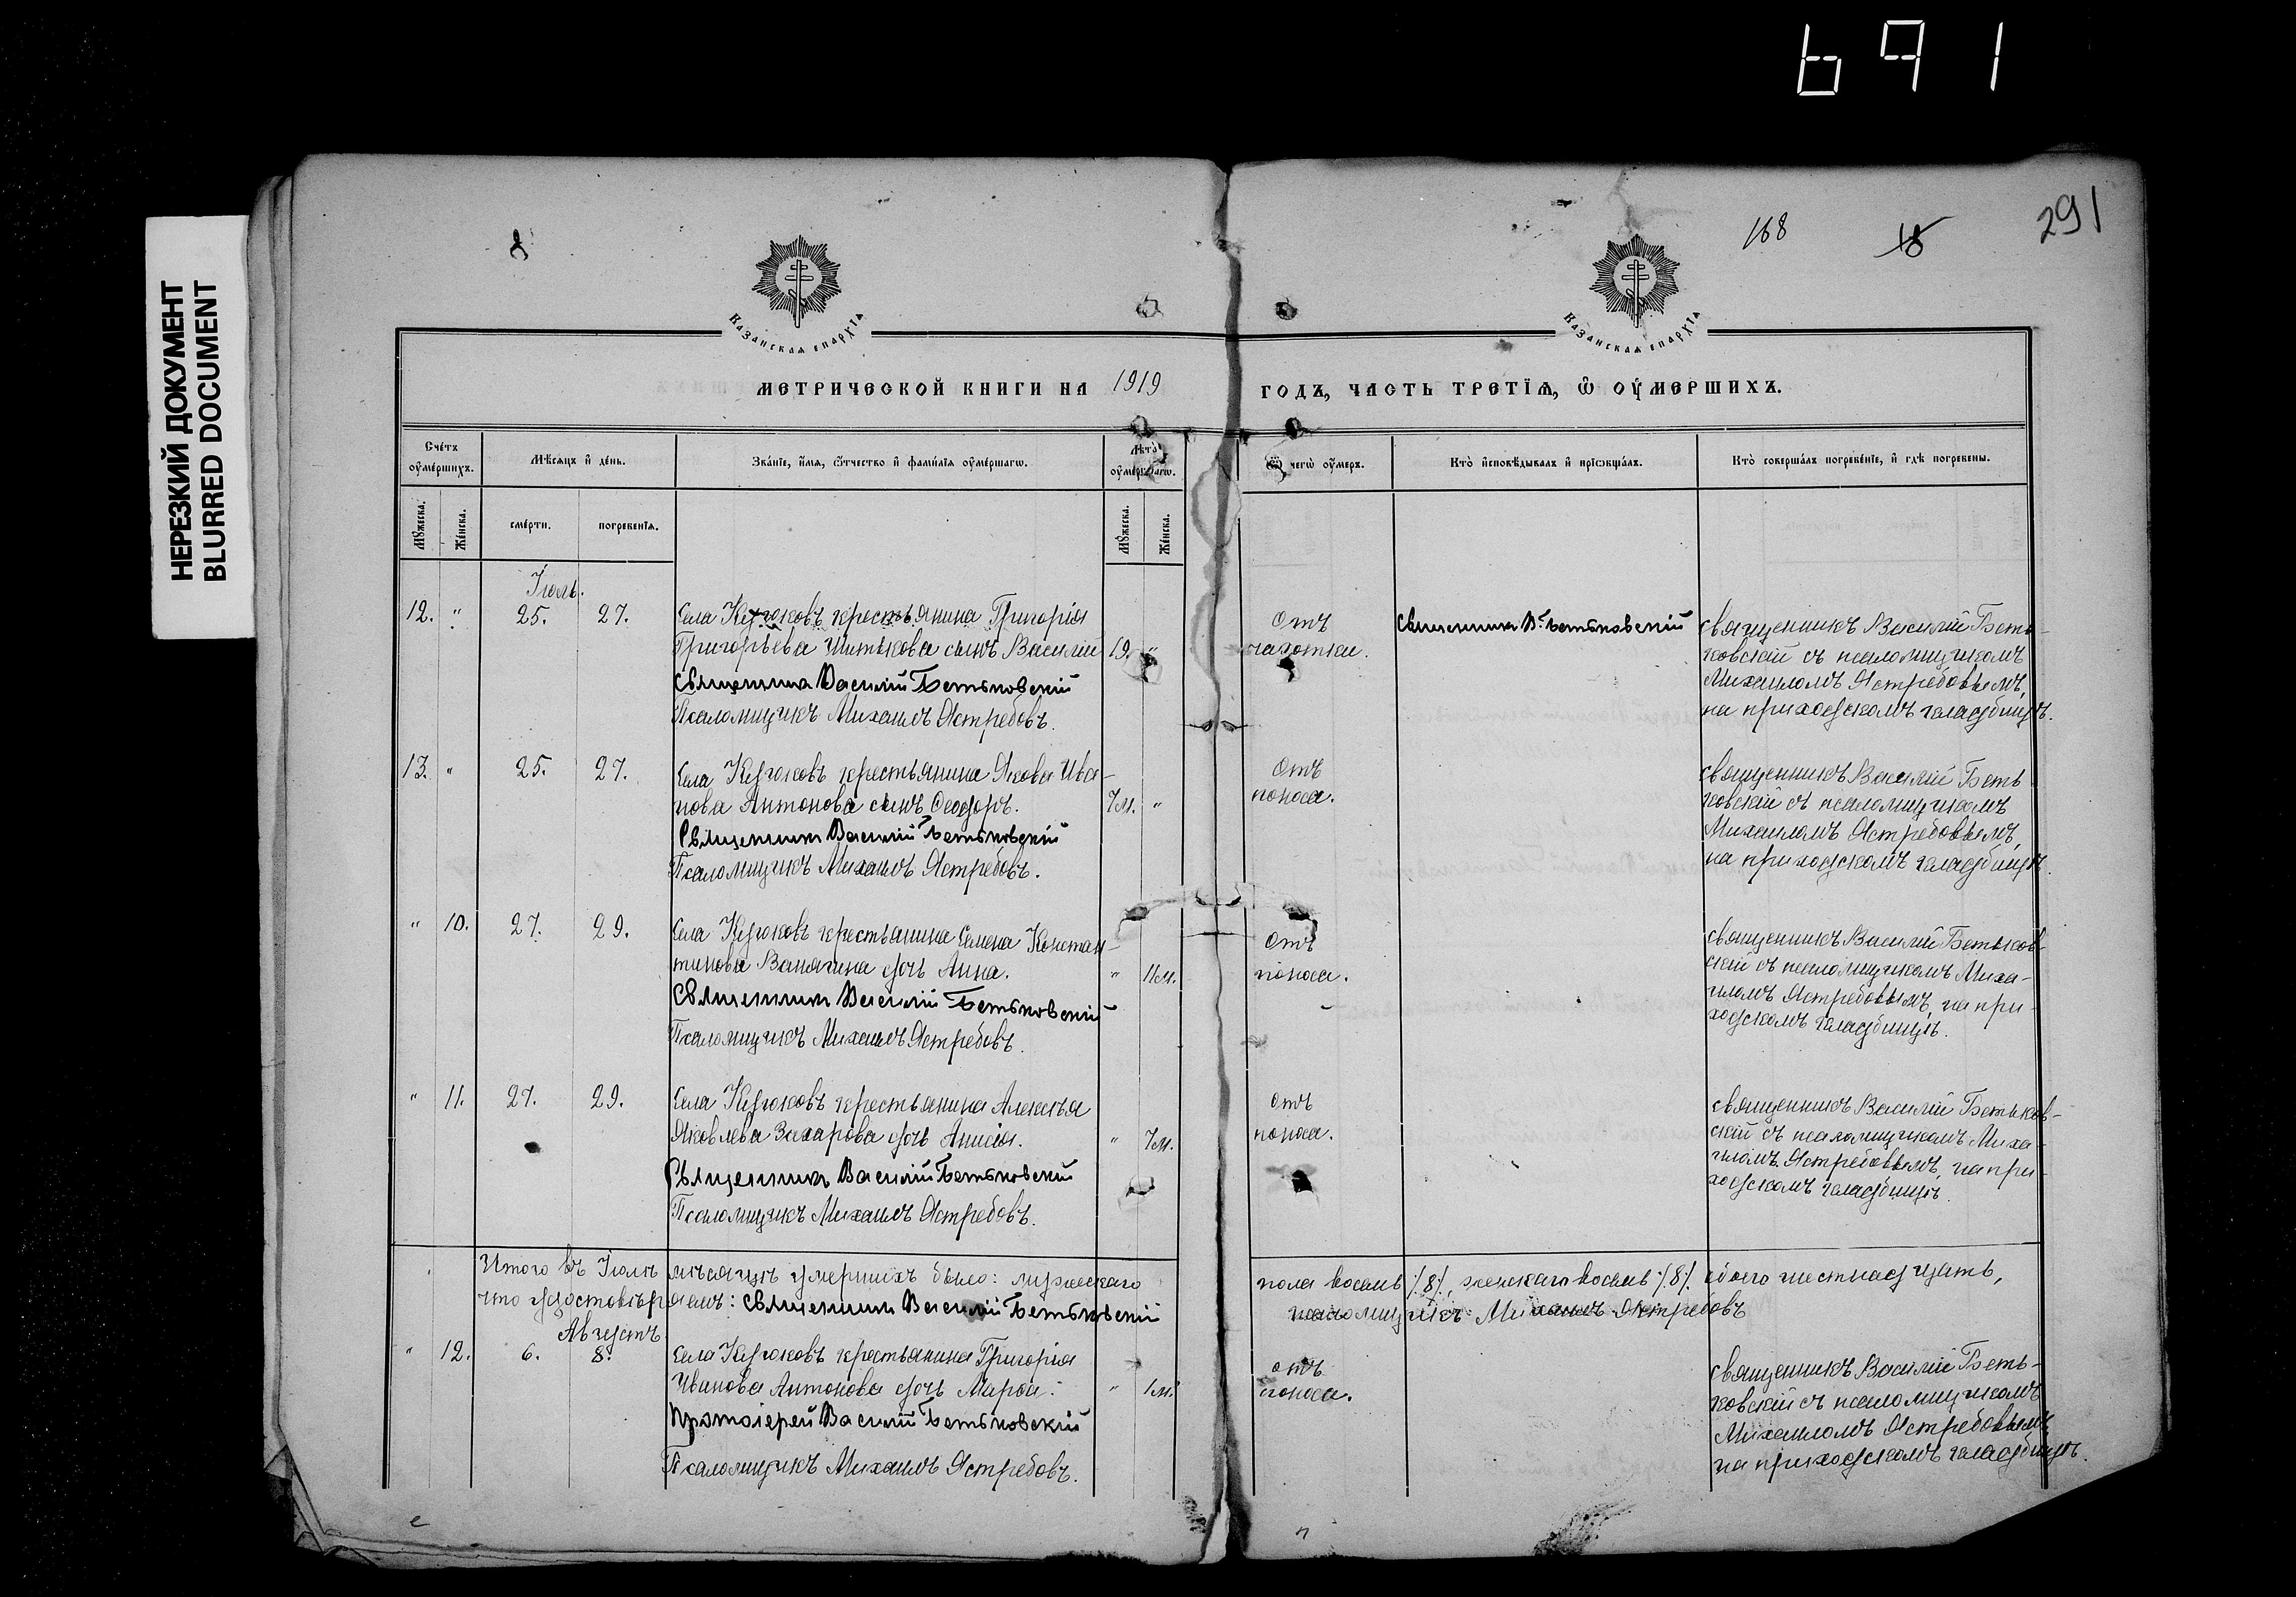 691
НЕРЕЗКИЙ ДОКУМЕНТ
BLURRED DOCUMENT
8
168
18
291
Казанская епархїѧ
Казанская епархїѧ
МЕТРИЧЕСКОЙ КНИГИ НА 1919
ГОДЪ, ЧАСТЬ ТРЕТЇѦ, Ѿ ОУМЕРШИХЪ.
Счетъ оумершихъ.
Мѣсяцъ и день.
Званїе, имя, отчество и фамилїя оумершагѡ.
Лѣта оумершагѡ.
Ѿ чегѡ оумеръ.
Кто исповѣдывалъ и прїѡбщалъ.
Кто совершалъ погребенїе, и гдѣ погребены.
Мужеска.
Женска.
смерти.
погребенїя.
Мужеска.
Женска.
Іюль.
12. " 25. 27.
Села крестьянина Григорія
Григорьева Шитькова сынъ Василій 19. "
Священникъ Василій Бетьковскій
Псаломщикъ Михаилъ Ястребовъ.
Отъ
чахотки.
Священникъ В. Бетьковскій
священникъ Василій Беть-
ковскій съ псаломщикомъ
Михаиломъ Ястребовымъ,
на приходскомъ кладбищѣ.
13. " 25. 27.
Села крестьянина Якова Ива-
нова Антонова сынъ Ѳеодоръ. 7м. "
Священникъ Василій Бетьковскій
Псаломщикъ Михаилъ Ястребовъ.
Отъ
поноса.
священникъ Василій Беть
ковскій съ псаломщикомъ
Михаиломъ Ястребовымъ,
на приходскомъ кладбищѣ.
" 10. 27. 29.
Села крестьянина Семена Констан-
тинова Ванягина дочь Анна. " 11м.
Священникъ Василій Бетьковскій
Псаломщикъ Михаилъ Ястребовъ.
Отъ
поноса.
священникъ Василій Бетьков-
скій съ псаломщикомъ Миха-
иломъ Ястребовымъ, на при-
ходскомъ кладбищѣ.
" 11. 27. 29.
Села крестьянина Алексѣя
Яковлева Захарова дочь Анисія. " 7м.
Священникъ Василій Бетьковскій
Псаломщикъ Михаилъ Ястребовъ.
отъ
поноса.
священникъ Василій Бетьков-
скій съ псаломщикомъ Миха-
иломъ Ястребовымъ, на при-
ходскомъ кладбищѣ.
Итого въ Іюлѣ мѣсяцѣ умершихъ было: мужескаго
пола восемь /8/, женскаго восемь /8/, обоего шестнадцать,
что удостовѣряемъ: Священникъ Василій Бетьковскій
псаломщикъ Михаилъ Ястребовъ
Августъ
" 12. 6. 8.
Села крестьянина Григорія
Иванова Антонова дочь Марѳа. " 1м.
Протоіерей Василій Бетьковскій
Псаломщикъ Михаилъ Ястребовъ.
отъ
поноса.
священникъ Василій Беть-
ковскій съ псаломщикомъ
Михаиломъ Ястребовымъ
на приходскомъ кладбищѣ.